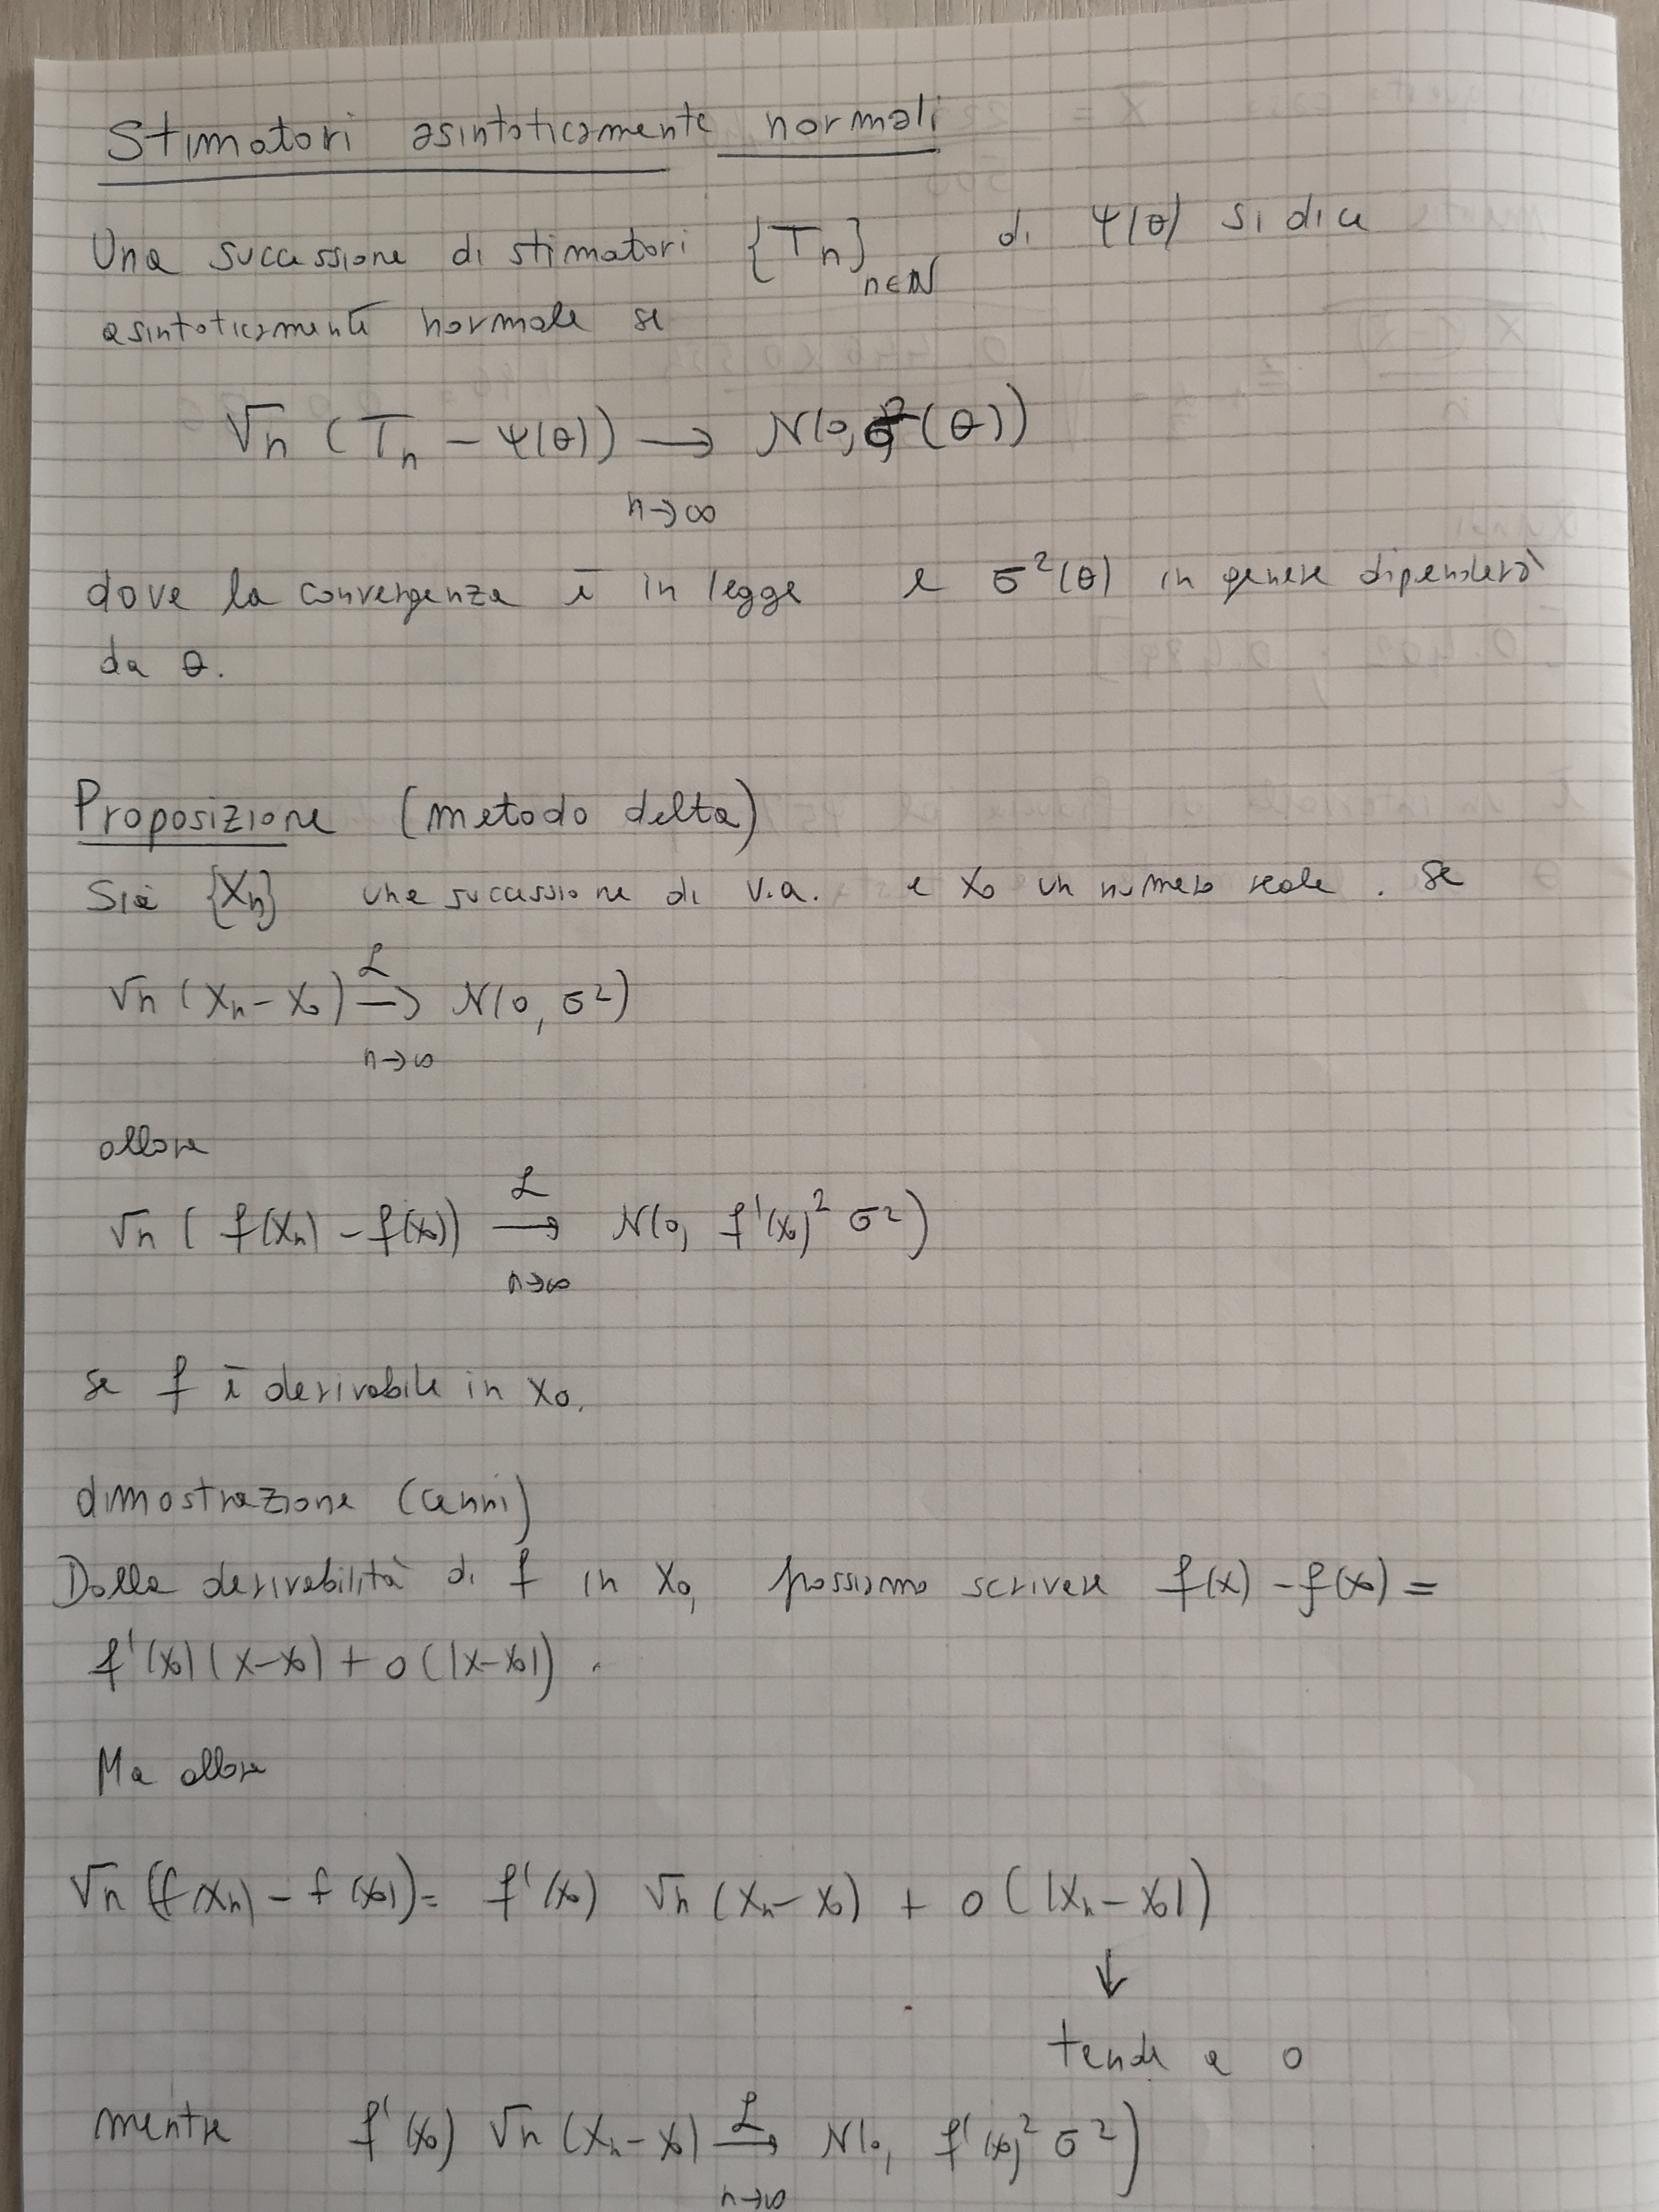 Stimatori asintoticamente normali
Una successione di stimatori {Tn}n∈ℕ di Ψ(θ) si dice
asintoticamente normale se
√n (Tn − Ψ(θ)) → N(0, σ²(θ))
n→∞
dove la convergenza è in legge e σ²(θ) in genere dipenderà
da θ.
Proposizione (metodo delta)
Sia {Xn} una successione di v.a. e x₀ un numero reale. Se
√n (Xn − x₀) →ℒ N(0, σ²)
n→∞
allora
√n (f(Xn) − f(x₀)) →ℒ N(0, f'(x₀)² σ²)
n→∞
se f è derivabile in x₀.
dimostrazione (cenni)
Dalla derivabilità di f in x₀, possiamo scrivere f(x) − f(x₀) =
f'(x₀)(x−x₀) + o(|x−x₀|).
Ma allora
√n (f(Xn) − f(x₀)) = f'(x₀) √n (Xn − x₀) + o(|Xn − x₀|)
↓
tende a 0
mentre f'(x₀) √n (Xn − x₀) →ℒ N(0, f'(x₀)² σ²)
n→∞